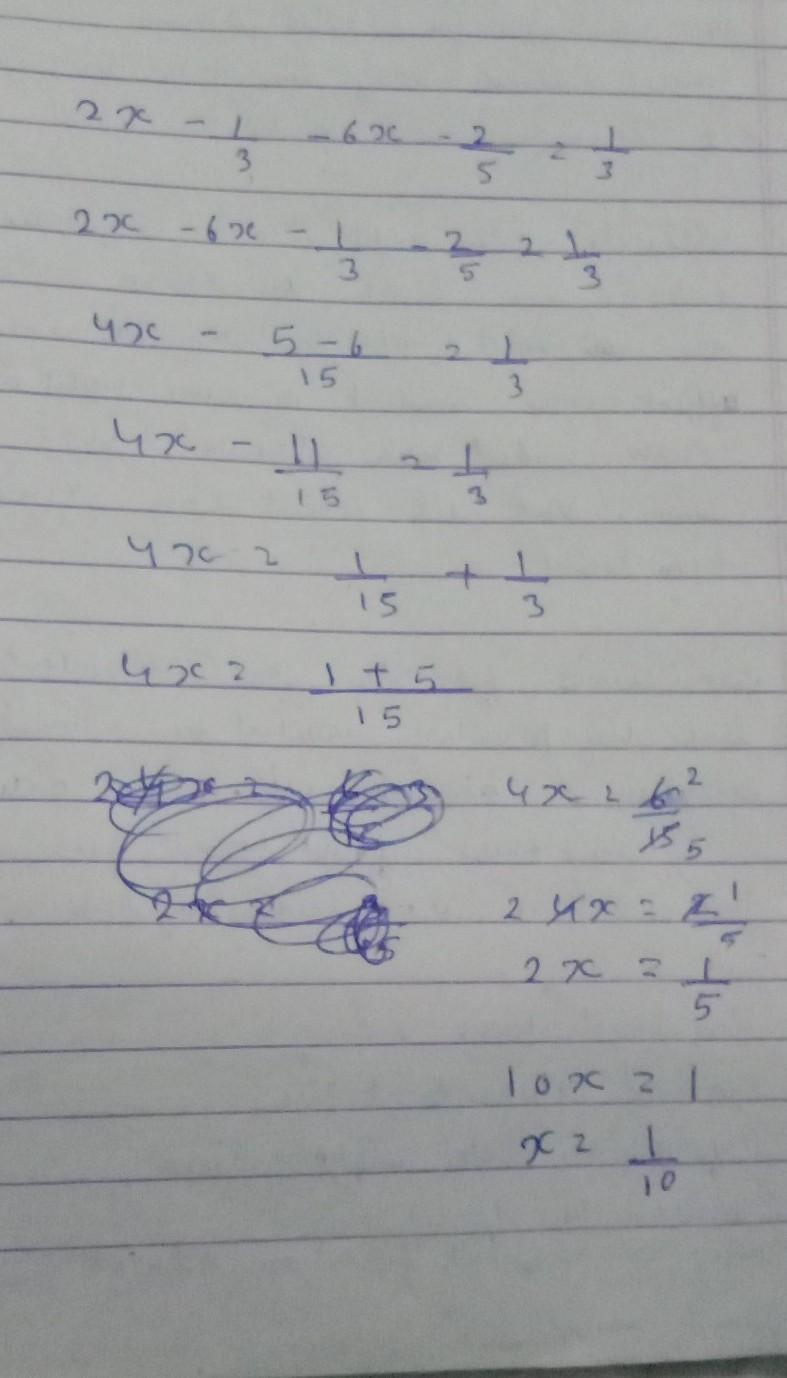 2x - 1/3 - 6x - 2/5 = 1/3
2x - 6x - 1/3 - 2/5 = 1/3
4x - 5-6/15 = 1/3
4x - 11/15 = 1/3
4x = 1/15 + 1/3
4x = 1+5/15
4x = 6 2/15 5
2 4x = 2 1/5
2x = 1/5
10x = 1
x = 1/10